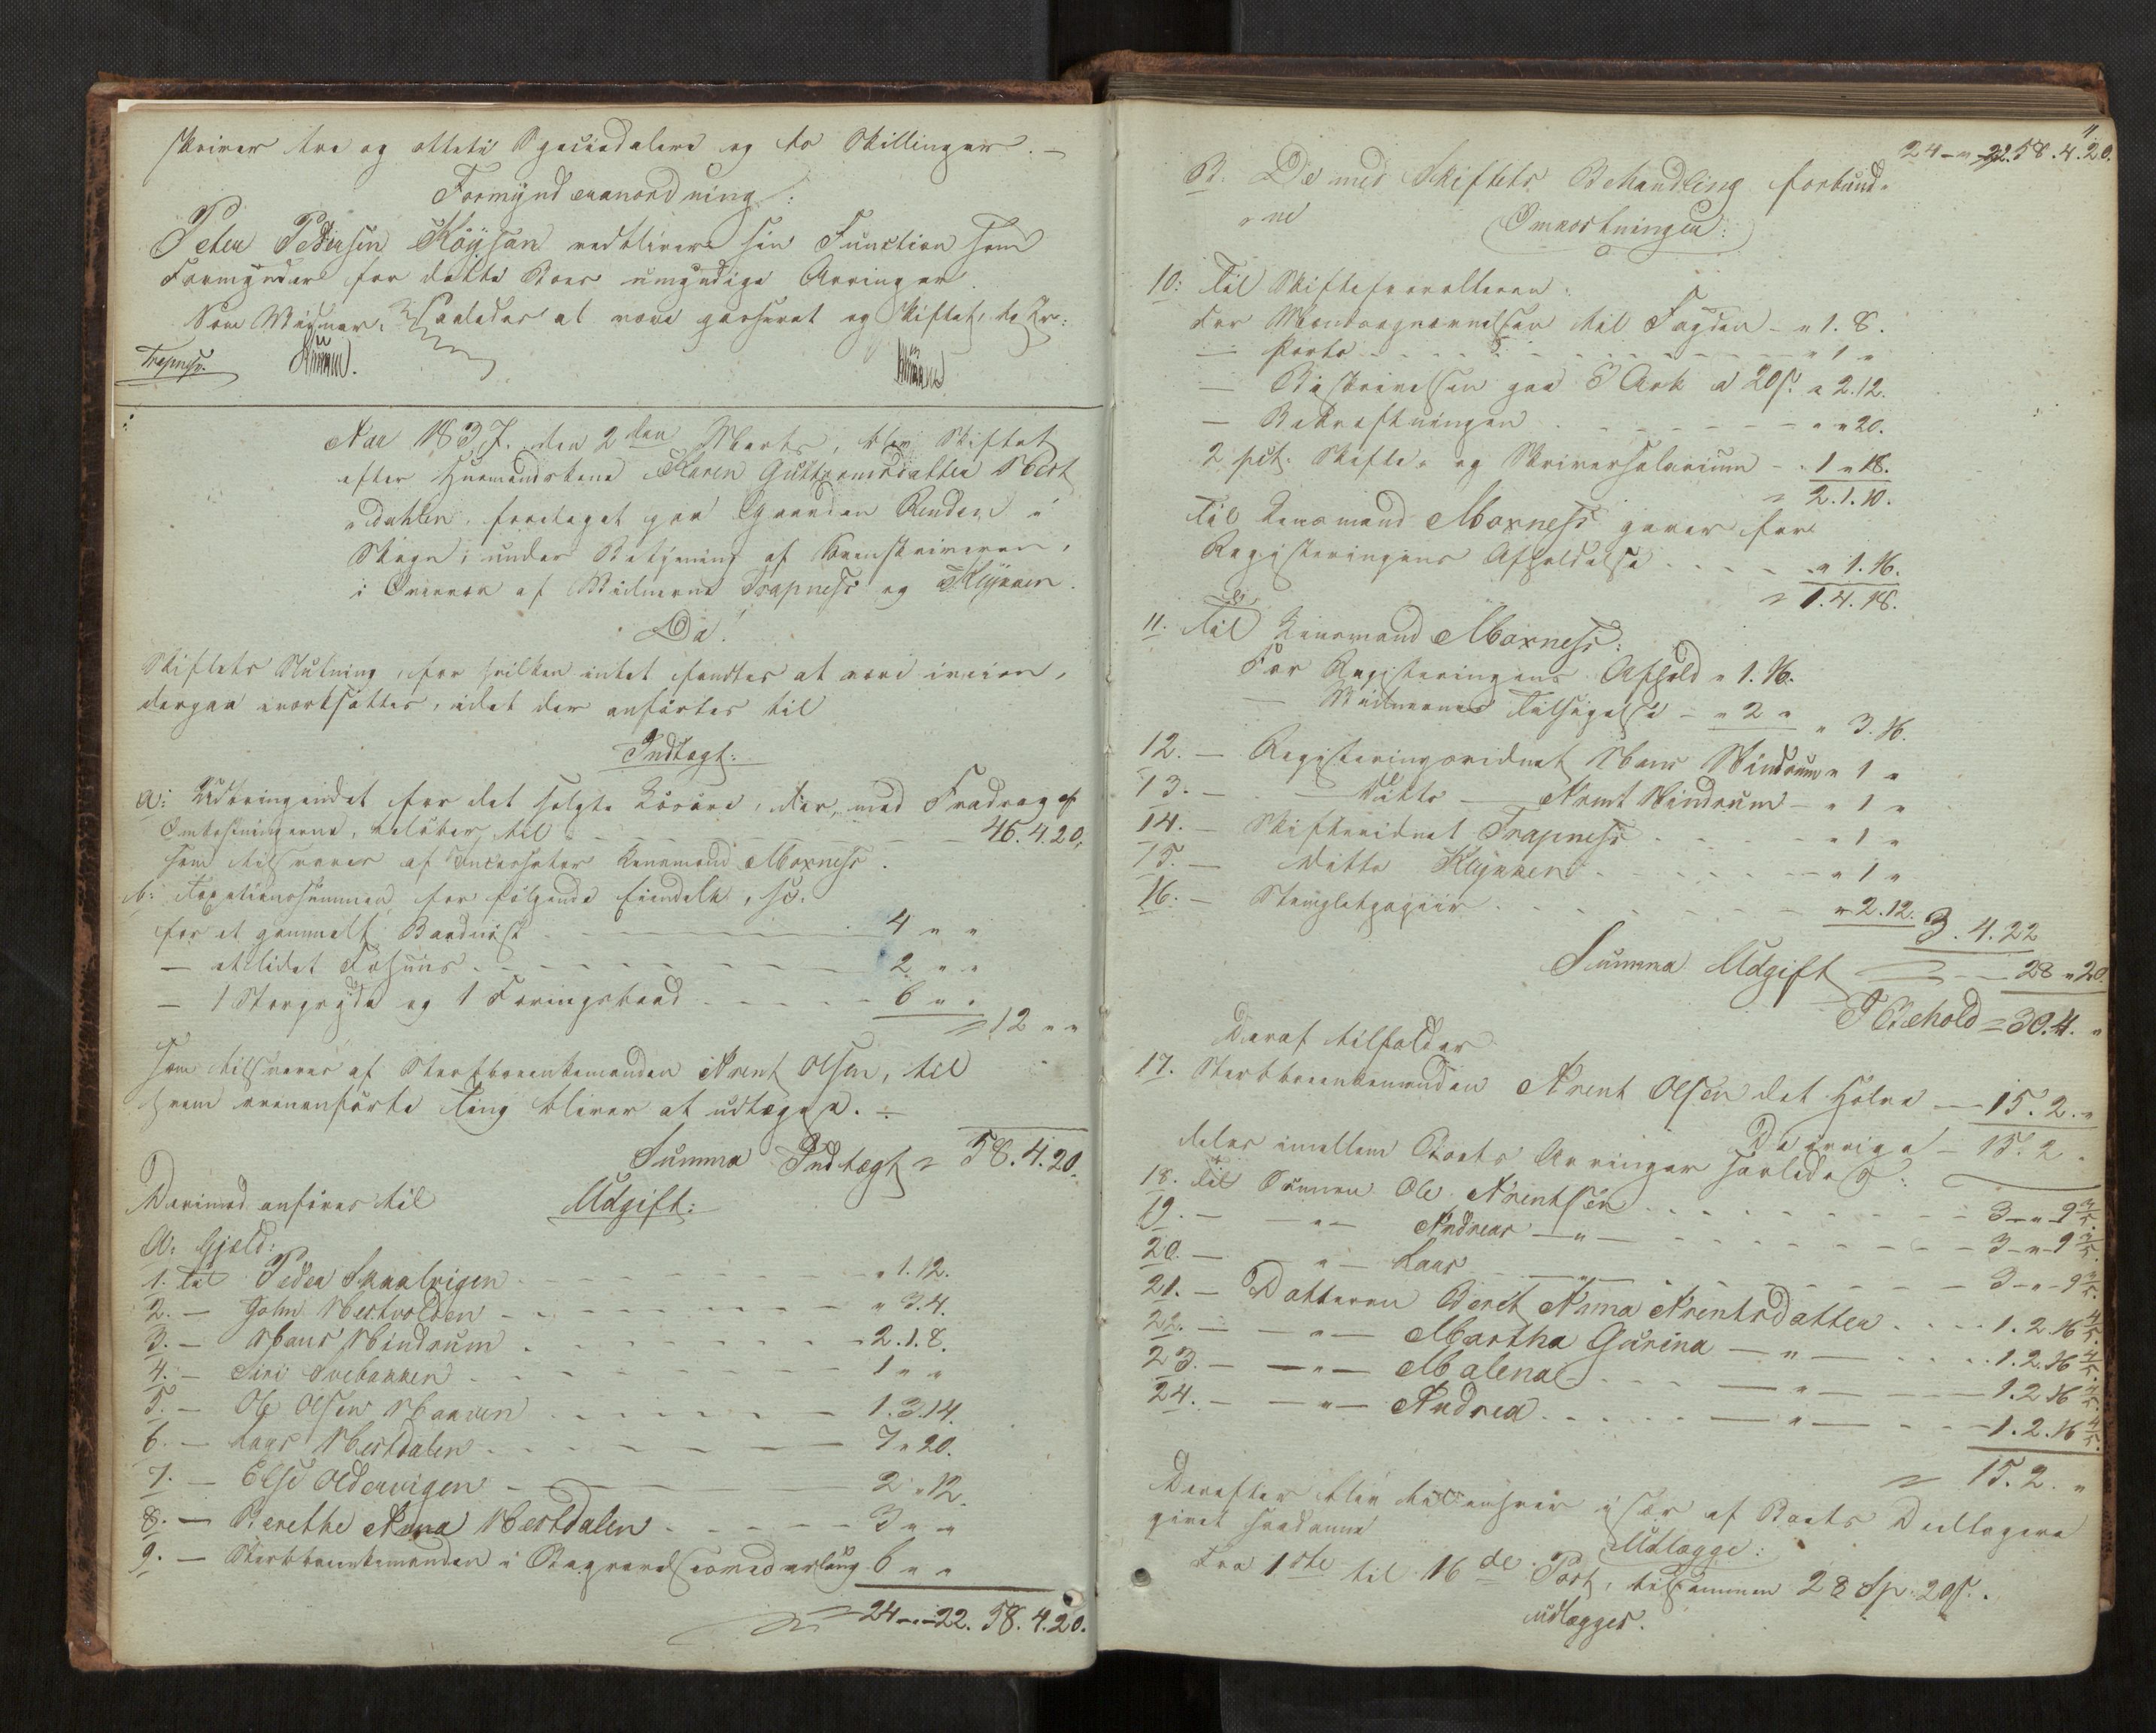 skriver tre og otteti Speciedalere og to Skillinger. —
Formynderanordning:
Peter Pedersen Köysan vedbliver sin Function som
Formynder for dette Boes umyndige Arvinger.
Som Mögner: Saaledes at være passeret og skiftet,
Trapness.
Aar 1837. den 2den Marts, blev Skiftet
efter Huusmandskone Karen Guttormsdatter Vest
dahlen, foretaget paa Gaarden Renden i
Skogn, under Betjening af Sorenskriveren,
i Overvær af Vidnerne Trapness og Klykken.
Da!
Skiftets Slutning, for hvilken intet fandtes at være iveien,
derpaa iværksattes, idet der anførtes til
Indtægt:
a: Udbringendet for det solgte Løsøre, der, med Fradrag af
Omkostningerne, beløber til — 46.4.20,
som tilsvares af Incassator Lensmand Moxness.
b: Taxationssummen for følgende Eiendele, sc.
for et gammelt Baadnøst — 4 " "
— et lidet Føhuus — 2. " "
— 1 Størgryde og 1 Færingsbaad — 6 " "
= 12 " "
som tilsvares af Sterboenkemanden Arent Olsen, til
hvem ovenanførte Ting bliver at udlægge. ÷
Summa Indtægt = 58.4.20.
Derimod anføres til Udgift:
A: Gjeld:
1. til Peder Skaalvigen — " 1.12.
2. — John Vestvolden — " 3.4.
3. — Hans Mindrum — 2.1.8.
4. — Siri Svebakken — 1 " "
5. — Ole Olsen — 1.3.14.
6. — Lars Vestdalen — 7 " 20.
7. — Else Oldervigen — 2 " 12.
8. — Berethe Anna Vestdalen — 3 " "
9. — Sterboenkemanden i Begravelsesvederlaug 6 " "
= 24 — " — 22. 58.4.20.
11
24 — " — 22. 58.4.20.
B. De med Skiftets Behandling forbund-
ne
Omkostninger:
10: Til Skifteforvalteren:
For Mændsopnævnelsen til Fogden — " 1.8.
— Porto — " 1 "
— Beskrivelsen paa 3 Ark a 20s. " 2.12.
— Bekræftningen — " " 20.
2 pct. Skifte- og Skriversalarium — 1 " 18.
= 2.1.10.
Til Lensmand Moxness paver for
Registeringens Afholdelse — " 1.16.
= 1.4.18.
11. Til Lensmand Moxness:
For Registeringens Afhold " 1.16.
— Vidnernes Tilsigelse — " 2 " " 3.16.
12. — Registeringsvidnet Hans Mindrum " 1 "
13. — Ditto — Arnt Mindrum — " 1 "
14. — Skiftevidnet Trapness — " 1 "
15. — Ditto Klykken — " 1 "
16. — Stemplet papiir — " 2.12. 3.4.22
Summa Udgift — 28 " 20.
I Behold = 30.4. "
Deraf tilfalder
17. Sterboenkemanden Arent Olsen det Halve — 15.2. "
De øvrige — 15.2. "
deles imellem Boets Arvinger saaledes:
18. til Sønnen Ole Arentsen — 3 — " — 9 3/5.
19. — — " — Andreas — " — 3 — " — 9 3/5.
20. — " — Lars — " — 3 — " — 9 3/5.
21. — Datteren Berit Anna Arentsdatter — 1.2.16 4/5.
22. — — " — Martha Gurina — " — 1.2.16 4/5.
23. — — " — Malena — " — 1.2.16 4/5.
24. — — " — Andrea — " — 1.2.16 4/5.
= 15.2. "
Derefter blev til enhver især af Boets Deeltagere
givet saadanne
Udlægge:
Fra 1ste til 16de Post, tilsammen 28 Sp: 20s.
udlægges.